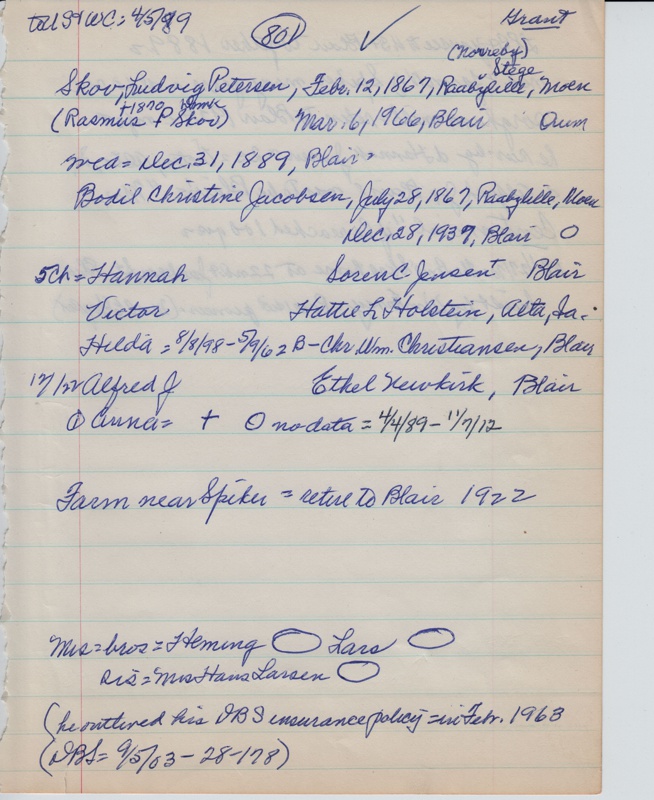 tel St WC = 4/5/89
801 ✓
Grant
(Norreby)
Stege
Skov, Ludvig Petersen, Febr. 12, 1867, Raabylille, Moen
+1870 Dmk
(Rasmus P Skov) Mar. 6, 1966, Blair Oum
wed = Dec. 31, 1889, Blair =
Bodil Christine Jacobsen, July 28, 1867, Raabylille, Moen
Dec. 28, 1937, Blair O
5 Ch = Hannah Soren C Jensen + Blair
Victor Hattie L Holstein, Alta, Ia.
Hilda = 8/8/98 - 5/9/62 B - Chr. Wm. Christiansen, Blair
Alfred J Ethel Newkirk, Blair
O Anna = + O no data = 4/4/89 - 11/7/12
Farm near Spiker = retire to Blair 1922
Mrs = bros = Fleming O Lars O
sis = Mrs Hans Larsen O
(he outlived his DBS insurance policy = in Febr. 1963
(DBS = 9/5/03 - 28 - 178)